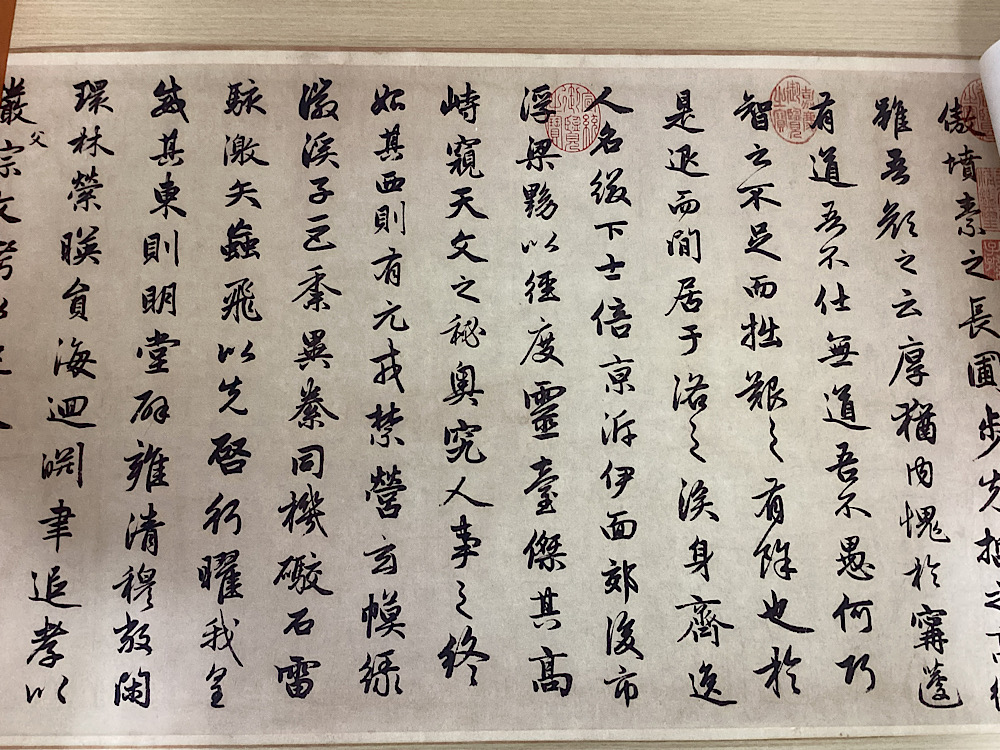 傲墳素之長圃步先
雖吾顏之云厚猶內愧於甯蘧
有道吾不仕無道吾不愚何巧
智之不足而拙艱之有餘也於
是退而閒居于洛之涘身齊逸
人名綴下士倍京泝伊面郊後市
浮梁黝以徑度靈臺傑其高
峙窺天文之秘奧究人事之終
始其西則有元戎禁營玄幙綠
徽溪子巨黍異絭同機礮石雷
駭激矢蝱飛以先啓行曜我皇
威其東則明堂辟雍清穆敞閑
環林縈映員海迴淵聿追孝以
嚴父宗文考以
嘉慶御覽之寶
宣統御覽之寶